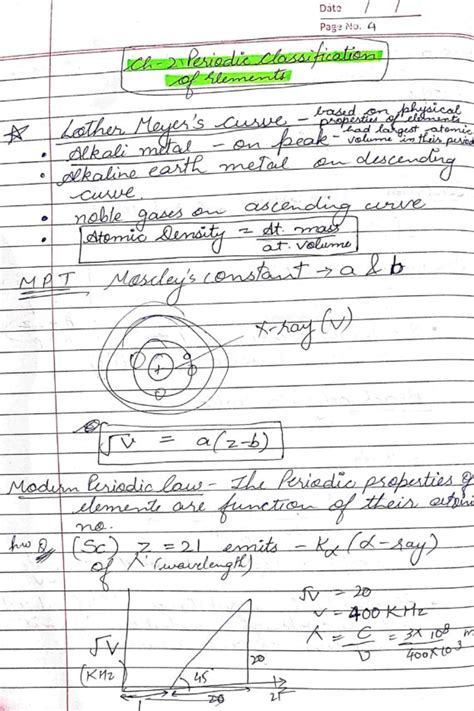 Date / /
Page No. 4
Ch-2 Periodic Classification
of Elements
Lother Meyer's curve - based on physical
properties of elements
Alkali metal - on peak - had largest atomic
volume in their period
Alkaline earth metal on descending
curve
noble gases on ascending curve
Atomic Density = At. mass
at. volume
MPT Moseley's constant → a & b
x-ray (ν)
√ν = a(z-b)
Modern Periodic law - The Periodic properties of
elements are function of their atomic
no.
hw Q (Sc) z = 21 emits - Kα (α-ray)
of λ (wavelength)
√ν = 20
ν = 400 KHz
λ = C = 3X10⁸ m
ν 400X10³
√ν
(KHz)
45°
20
20
21
1